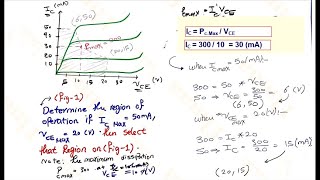 I C (mA)
60
50
(6,50)
40
30
P max = 300
20
(20,15)
10
5 10 15 20 30
V CE (V)
(fig-1)
Determine the region of
operation if I C Max = 50mA,
V CE MAX = 20 (V) then select
that Region on (fig-1).
Note: the maximum dissipation
P C max = 300 at V CE = 10 (V)
P max = I C V CE
I C = P c.Max / V CE
I C = 300 / 10 = 30 (mA)
when I C max = 50 (mA)
300 = 50 * V CE
300 / 50 = V CE = 6 (V)
(6, 50)
when V CE = 20 (V)
300 = I C * 20
I C = 300 / 20 = 15 (mA)
(20, 15)